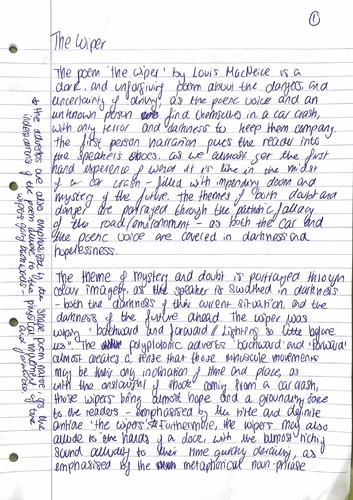 ①
The Wiper
The poem 'the wiper' by Louis MacNeice is a
dark, and unforgiving poem about the dangers and
uncertainty of driving, as the poetic voice and an
unknown person find themselves in a car crash,
with only terror and darkness to keep them company.
The first person narration puts the reader into
the speakers shoes, as we almost get the first
hand experience of what it is like in the midst
of a car crash - filled with impending doom and
mystery of the future. The themes of both doubt and
danger are portrayed through the pathetic fallacy
of the road/environment - as both the car and
the poetic voice are covered in darkness and
hopelessness.
The theme of mystery and doubt is portrayed through
colour imagery, as the speaker is swathed in darkness
- both the darkness of their current situation, and the
darkness of the future ahead. The wiper was
wiping "backward and forward / Lighting so little before
us". The polyptotonic adverbs 'backward' and 'forward'
almost creates a sense that those minuscule movements
may be their any inclination of time and place, as
with the onslaught of shock coming from a car crash,
those wipers bring almost hope and a grounding force
to the readers - emphasised by the title and definite
article 'the wipers'* Furthermore, the wipers may also
allude to the hands of a clock, with the almost ticking
sound alluding to their time quickly decaying, as
emphasised by the metaphorical noun-phrase
* the adverbs are also emphasised in the shape poem narrative, as the
indentations of the poem allude to the physical movement of the
wipers going backwards and forwards